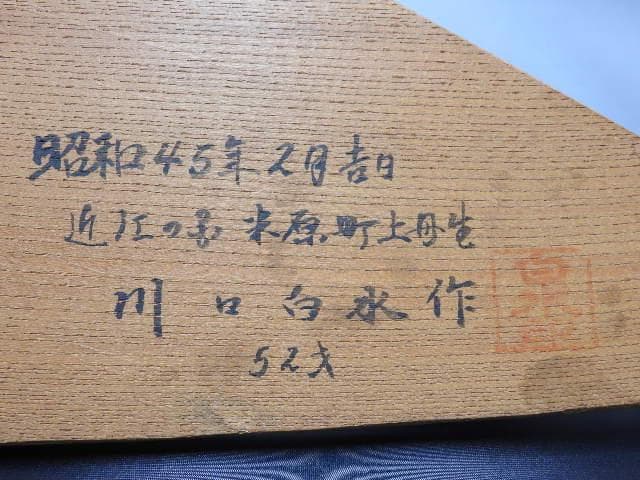 昭和45年2月吉日
近江の国 米原町上丹生
川口白水作
52才